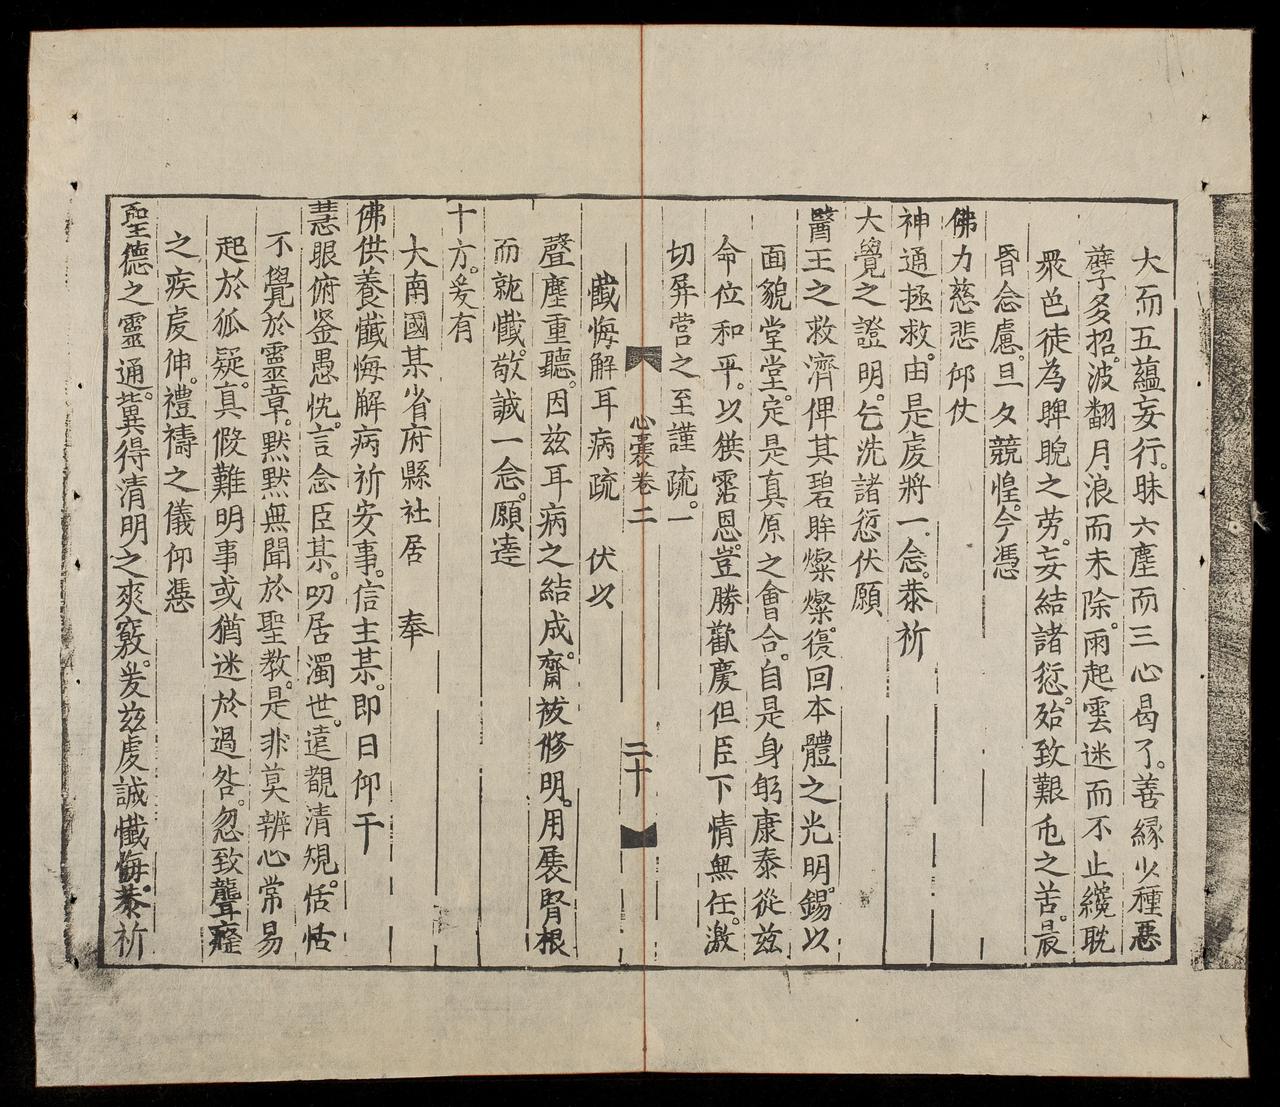 大而五蘊妄行。昧六塵而三心曷了。善緣少種惡
孽多招。波翻月浪而未除。雨起雲迷而不止纔耽
眾色徒為睥睨之劳。妄結諸愆。殆致艱危之苦。晨
昏念慮。旦夕競惶。今憑
佛力慈悲仰仗
神通拯救。由是虔將一念。恭祈
大覺之證明。乞洗諸愆伏願
醫王之救濟俾其碧眸燦燦。復回本體之光明。錫以
面貌堂堂。定是真原之會合。自是身躬康泰從兹
命位和平。以供霑恩。豈勝歡慶但臣下情無任。激
切屏营之至謹疏。一
心囊卷二 二十
懺悔解耳病疏 伏以
聲塵重聽。因兹耳病之結成。齋祓修明。用展腎根
而就懺。敬誠一念。願達
十方。爰有
大南國某省府縣社居 奉
佛供養懺悔解病祈安事。信主某。即日仰干
慧眼俯鉴愚忱。言念臣某。叨居濁世。遠覩清規。恬恬
不覺於靈章。默默無聞於聖教。是非莫辨心常易
起於狐疑。真假難明事或猶迷於過咎。忽致聾癡
之疾虔伸。禮禱之儀仰憑
聖德之靈通。冀得清明之爽竅。爰兹虔誠懺悔。恭祈